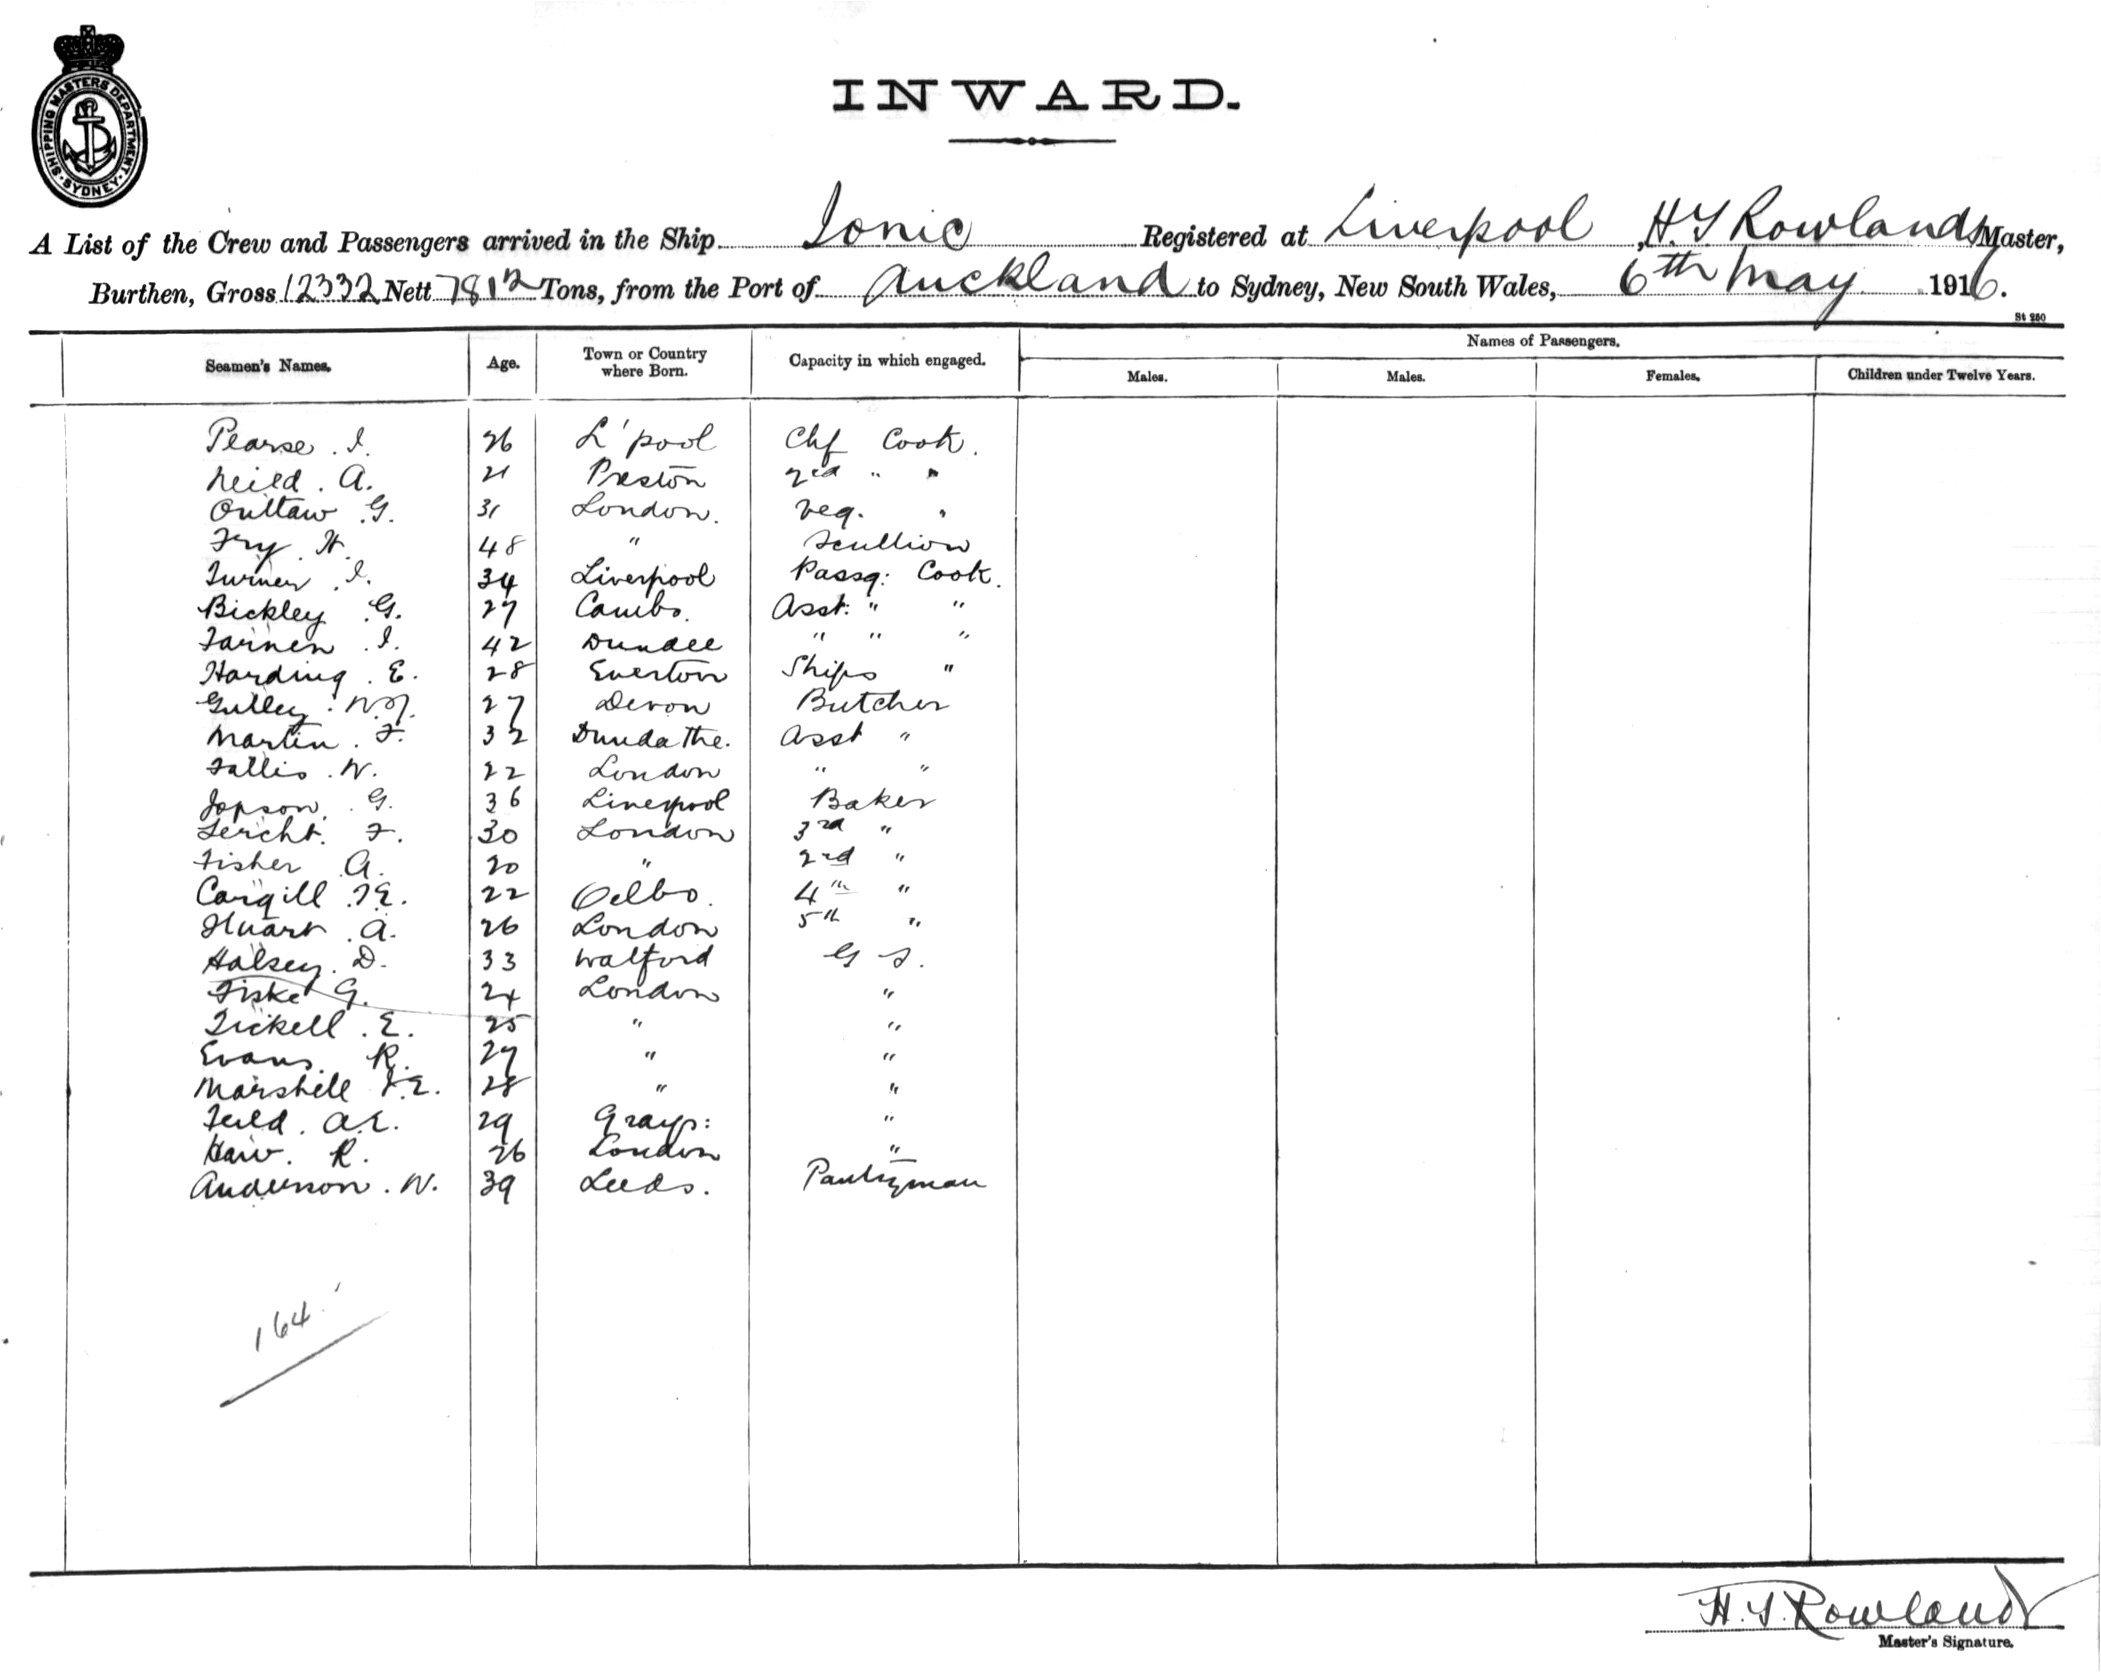 SHIPPING MASTERS DEPARTMENT · SYDNEY ·
INWARD.
A List of the Crew and Passengers arrived in the Ship Ionic Registered at Liverpool, H. Rowlands Master,
Burthen, Gross 12332 Nett 7812 Tons, from the Port of Auckland to Sydney, New South Wales, 6th May 1916.
St 250
Names of Passengers.
Seamen's Names. Age. Town or Country where Born. Capacity in which engaged. Males. Males. Females. Children under Twelve Years.
Pearse . I. 26 L'pool Chf Cook.
Neild . A. 21 Preston 2nd " "
Outlaw . G. 31 London. Veg. "
Fry . H. 48 " Scullion
Turner . I. 34 Liverpool Passg: Cook.
Bickley . G. 27 Cambs. Asst: " "
I. 42 Dundee " " "
Harding . E. 28 Everton Ships "
Gulley . 27 Devon Butcher
Martin . F. 32 Asst "
W. 22 London " "
Jopson . G. 36 Liverpool Baker
F. 30 London 3rd "
Fisher A. 20 " 2nd "
Cargill 22 4th "
A. 26 London 5th "
Halsey . D. 33 Watford G S.
Fiske G. 24 London "
Tickell . E. 25 " "
Evans . R. 27 " "
28 " "
29 Grays: "
R. 26 London "
Anderson . W. 39 Leeds. Pantryman
164
H. Rowlands
Master's Signature.